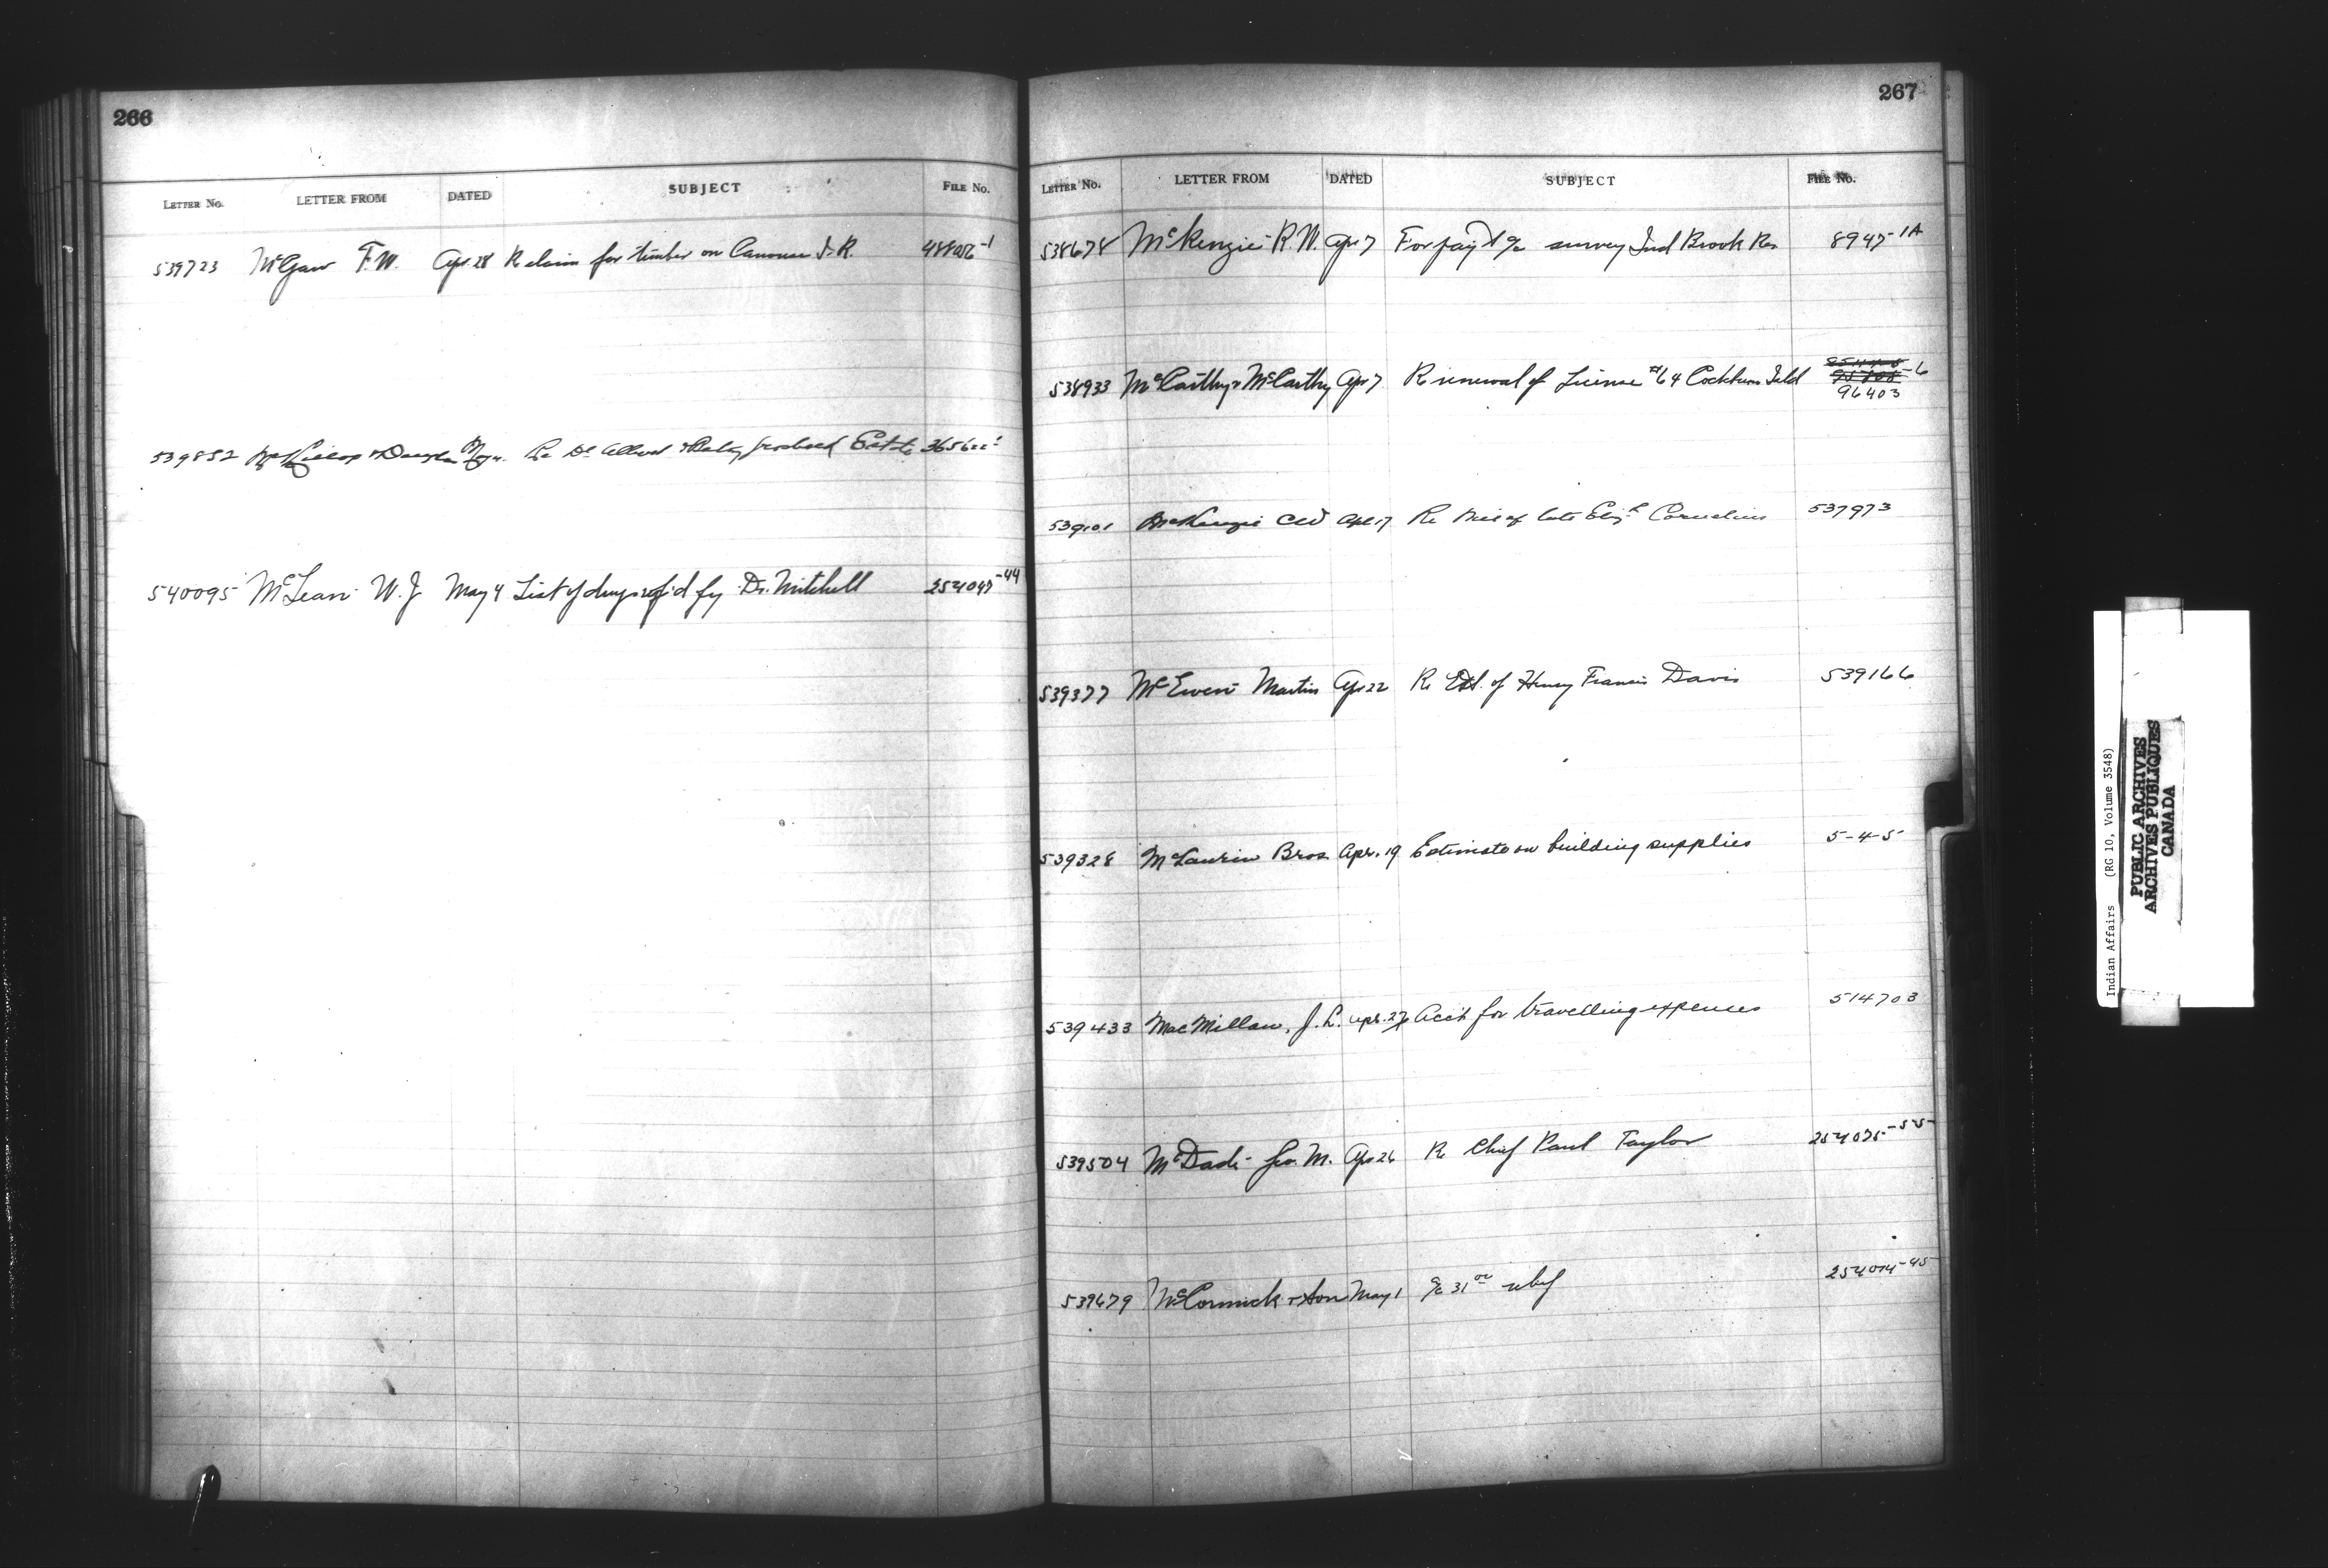 266
LETTER No. LETTER FROM DATED SUBJECT FILE No.
539723 McGaw F.W. Apr 28 Re claim for timber on Canouse I.R.
539852 & Douglas Re Estate
540095 McLean W.J. May 4 List of drugs reqd by Dr. Mitchell 254047-44
267
LETTER No. LETTER FROM DATED SUBJECT FILE No.
538678 McKenzie R.W. Apr 7 For paymt a/c survey Ind Brook Res 8947-1A
538933 McCarthy & McCarthy Apr 7 Re renewal of License #64 Cockburn Isld -6
96403
539101 McKenzie CW Apl 17 Re Will of late Eliz. Cornelius 537973
539377 McEwen Martin Apr 22 Re Est. of Henry Francis Davis 539166
539328 McLaurin Bros. Apr. 19 Estimate on building supplies 5-4-5
539433 MacMillan, J.L. Apr. 27 Acct for travelling expenses 514703
539504 McDade Geo. M. Apr 26 Re Chief Paul Taylor 254035-55
539679 McCormick & Son May 1 a/c 31.00 relief 254014-45
Indian Affairs (RG 10, Volume 3548)
PUBLIC ARCHIVES
ARCHIVES PUBLIQUES
CANADA